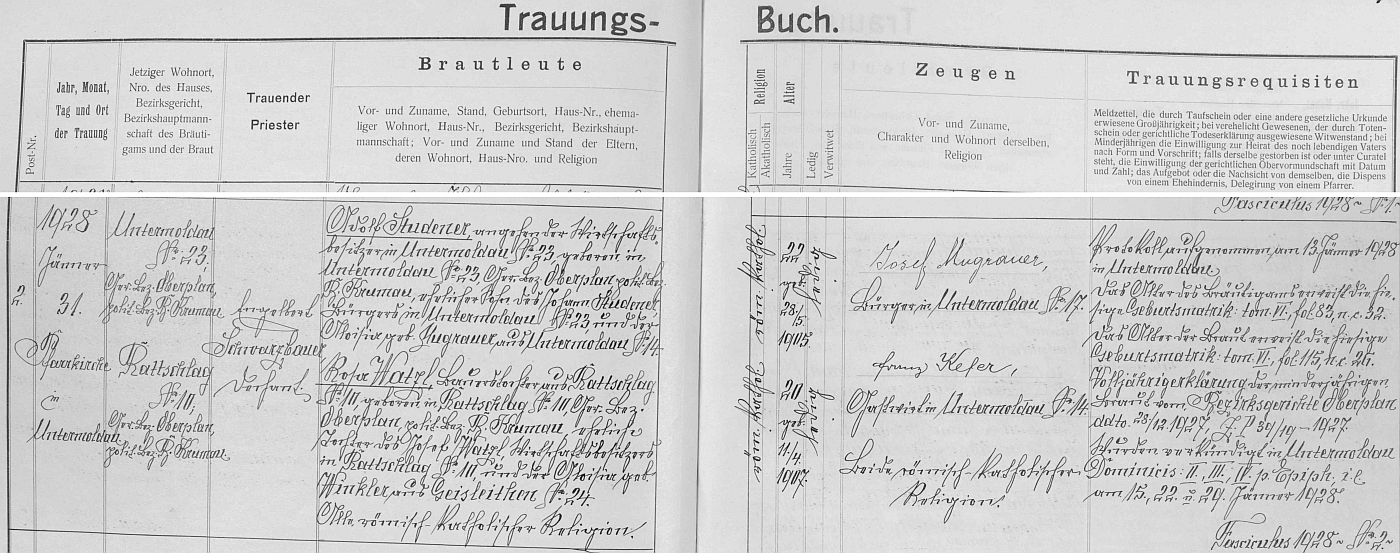 Trauungs-
Buch.
Post-Nr.
Jahr, Monat,
Tag und Ort
der Trauung
Jetziger Wohnort,
Nro. des Hauses,
Bezirksgericht,
Bezirkshauptmann-
schaft des Bräuti-
gams und der Braut
Trauender
Priester
Brautleute
Vor- und Zuname, Stand, Geburtsort, Haus-Nr., ehema-
liger Wohnort, Haus-Nr., Bezirksgericht, Bezirkshaupt-
mannschaft; Vor- und Zuname und Stand der Eltern,
deren Wohnort, Haus-Nro. und Religion
Religion
Katholisch
Akatholisch
Alter
Jahre
Ledig
Verwitwet
Zeugen
Vor- und Zuname,
Charakter und Wohnort derselben,
Religion
Trauungsrequisiten
Meldzettel, die durch Taufschein oder eine andere gesetzliche Urkunde
erwiesene Großjährigkeit; bei verehelicht Gewesenen, der durch Toten-
schein oder gerichtliche Todeserklärung ausgewiesene Witwenstand; bei
Minderjährigen die Einwilligung zur Heirat des noch lebendigen Vaters
nach Form und Vorschrift; falls derselbe gestorben ist oder unter Curatel
steht, die Einwilligung der gerichtlichen Obervormundschaft mit Datum
und Zahl; das Aufgebot oder die Nachsicht von demselben, die Dispens
von einem Ehehindernis, Delegirung von einem Pfarrer.
2
1928
Jänner
31.
Pfarrkirche
in
Untermoldau
Untermoldau
No. 23,
Ger. Bez. Oberplan,
polit. Bez. B. Krumau
Rattschlag
No. 10,
Ger. Bez. Oberplan,
polit. Bez. B. Krumau
Engelbert
Schwarzbauer
Dechant
Adolf Studener, angehender Wirtschafts-
besitzer in Untermoldau No. 23, geboren in
Untermoldau No. 23, Ger. Bez. Oberplan, polit. Bez.
B. Krumau, ehelicher Sohn des Johann Studener,
Bürgers in Untermoldau No. 23 und der
Aloisia geb. Mugrauer, aus Untermoldau No. 14.
Rosa Watzl, Bauerstochter aus Rattschlag
No. 10, geboren in Rattschlag No. 10, Ger. Bez.
Oberplan, polit. Bez. B. Krumau, eheliche
Tochter des Josef Watzl, Wirtschaftsbesitzers
in Rattschlag No. 10, und der Aloisia geb.
Winkler aus Geisleithen No. 24.
Alle römisch-katholischer Religion.
röm. kathol.
röm. kathol.
22
geb.
28/5.
1905
20
geb.
11/4.
1907.
ledig
ledig
Josef Mugrauer,
Bürger in Untermoldau No. 17.
Franz Kefer,
Gastwirt in Untermoldau No. 14.
Beide römisch-katholischer
Religion.
Fasciculus 1928 No. 1
Protokoll aufgenommen, am 13. Jänner 1928
in Untermoldau
Das Alter des Bräutigams erweist die hie-
sige Geburtsmatrik: tom. VI, fol. 83, n.c. 32.
Das Alter der Braut erweist die hiesige
Geburtsmatrik: tom. VI, fol. 115, n.c. 26.
Volljährigerklärung der minderjährigen
Braut vom Bezirksgerichte Oberplan
ddto. 28/12 1927, Z. P 39/19 – 1927.
Wurden verkündigt in Untermoldau
Dominicis: II., III., IV. p. Epiph. i.e.
am 15., 22. u. 29. Jänner 1928.
Fasciculus 1928 No. 2